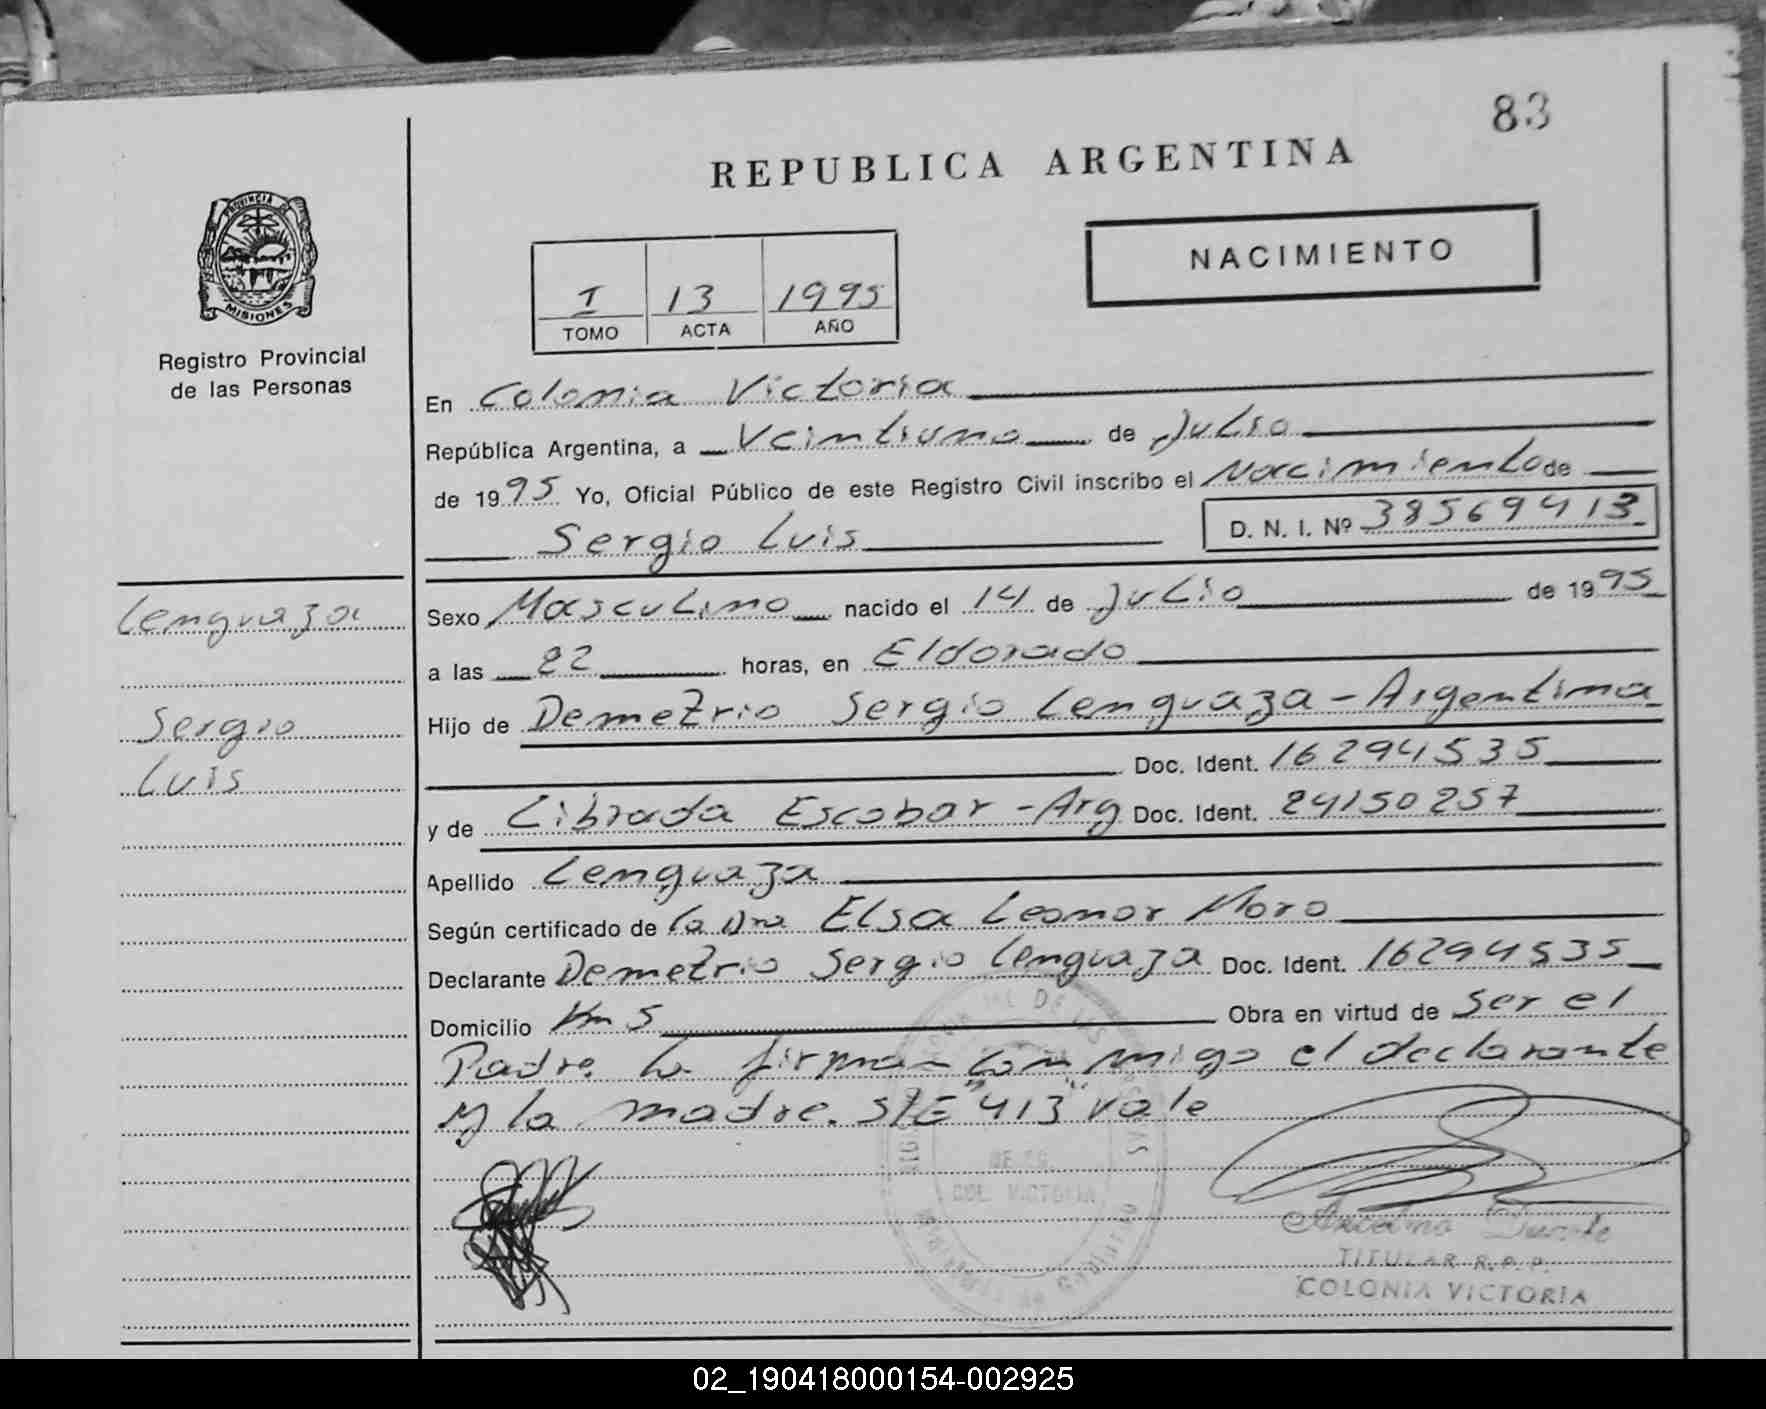 83
REPUBLICA ARGENTINA
PROVINCIA DE
MISIONES
Registro Provincial
de las Personas
I 13 1995
TOMO ACTA AÑO
NACIMIENTO
En Colonia Victoria
República Argentina, a Veintiuno de Julio
de 1995 Yo, Oficial Público de este Registro Civil inscribo el Nacimiento de
Sergio Luis D. N. I. Nº 38569413
Lenguaza
Sergio
Luis
Sexo Masculino nacido el 14 de Julio de 1995
a las 22 horas, en Eldorado
Hijo de Demetrio Sergio Lenguaza - Argentina
Doc. Ident. 16294535
y de Librada Escobar - Arg Doc. Ident. 24150257
Apellido Lenguaza
Según certificado de la Dra Elsa Leonor Moro
Declarante Demetrio Sergio Lenguaza Doc. Ident. 16294535
Domicilio Km 5 Obra en virtud de Ser el
Padre. La firman con migo el declarante
y la madre. S/E "413" vale
COL. VICTORIA
TITULAR R.P.P.
COLONIA VICTORIA
02_190418000154-002925